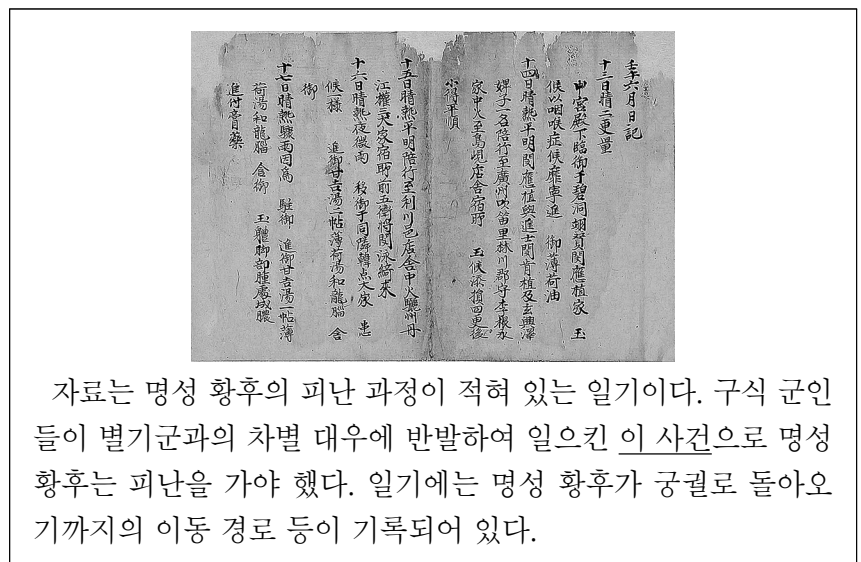 壬午六月日記
十三日晴二更量
中宮殿下臨御于碧洞翊贊閔應植家 玉
候以咽喉症候靡寧進 御薄荷油
十四日晴熱平明閔應植與進士閔肯植及玄興澤
婢子一名陪行至廣州吹笛里林川郡守李根永
家中火至鳥峴店舍宿所 玉候添損四更後
小得平順
十五日晴熱平明陪行至利川邑店舍中火驪州丹
江權三大家宿所前五衛將閔泳綺來
十六日晴熱夜微雨 移御于同隣韓点大家 患
候一樣 進御甘吉湯二帖薄荷湯和龍腦 含
御
十七日晴熱驟雨因爲 駐御 進御甘吉湯一帖薄
荷湯和龍腦 含御 玉體脚部腫處成膿
進付膏藥
자료는 명성 황후의 피난 과정이 적혀 있는 일기이다. 구식 군인
들이 별기군과의 차별 대우에 반발하여 일으킨 이 사건으로 명성
황후는 피난을 가야 했다. 일기에는 명성 황후가 궁궐로 돌아오
기까지의 이동 경로 등이 기록되어 있다.